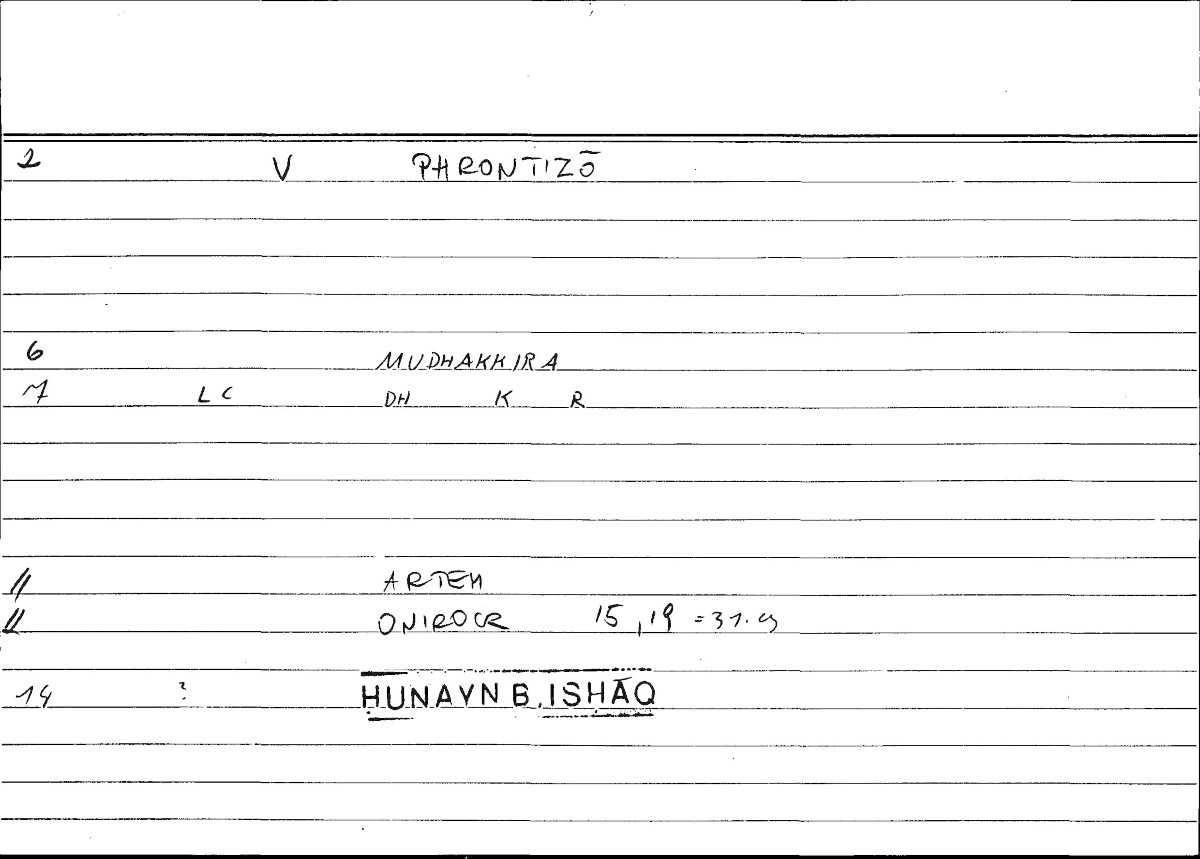 2 V PHRONTIZŌ
6 MUDHAKKIRA
7 LC DH K R
11 ARTEM
11 ONIROCR 15,19 = 31.9
14 ? ḤUNAYN B. ISḤĀQ